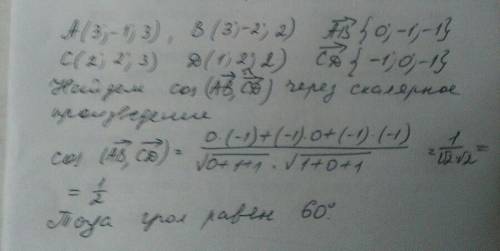 A(3;-1;3), B(3;-2;2) \overrightarrow{AB}{0;-1;-1}
C(2;2;3) D(1;2;2) \overrightarrow{CD}{-1;0;-1}
Найдем cos(\overrightarrow{AB},\overrightarrow{CD}) через скалярное
произведение
cos(\overrightarrow{AB},\overrightarrow{CD}) = \frac{0·(-1)+(-1)·0+(-1)·(-1)}{\sqrt{0+1+1}·\sqrt{1+0+1}} = \frac{1}{\sqrt{2}\sqrt{2}} =
= \frac{1}{2}
Тогда угол равен 60°.